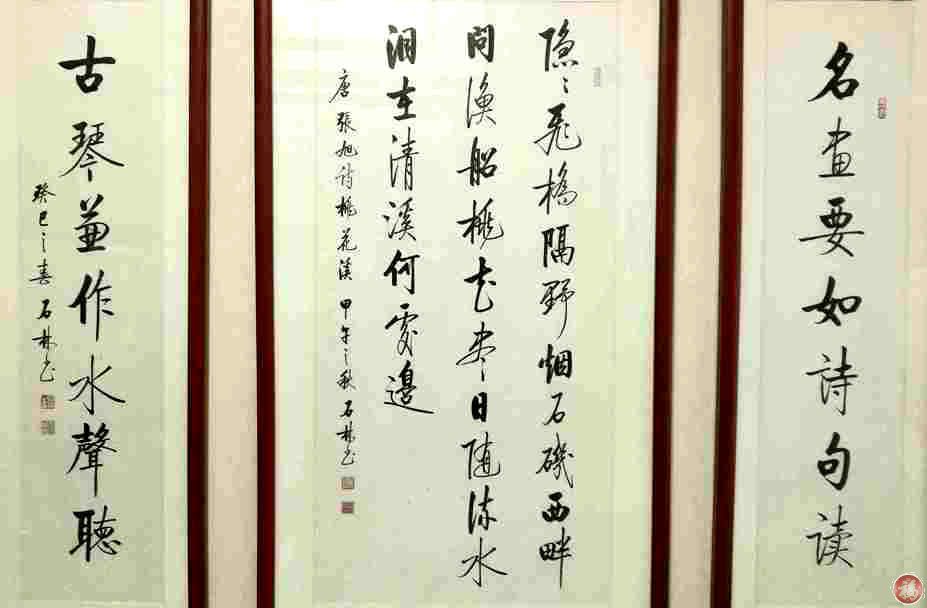 名畫要如詩句读
隐々飛橋隔野烟石磯西畔
問漁船桃花尽日随流水
洞在清溪何處邊
唐張旭詩桃花溪 甲午之秋 石林书
古琴兼作水聲聽
癸巳之春 石林书
福